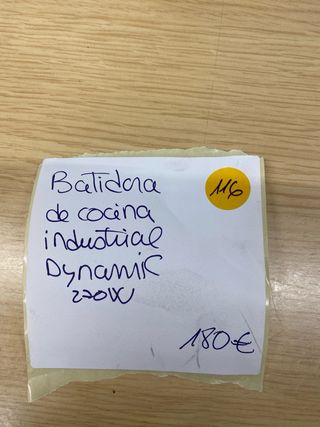 Batidora
116
de cocina
industrial
Dynamic
220W
180€